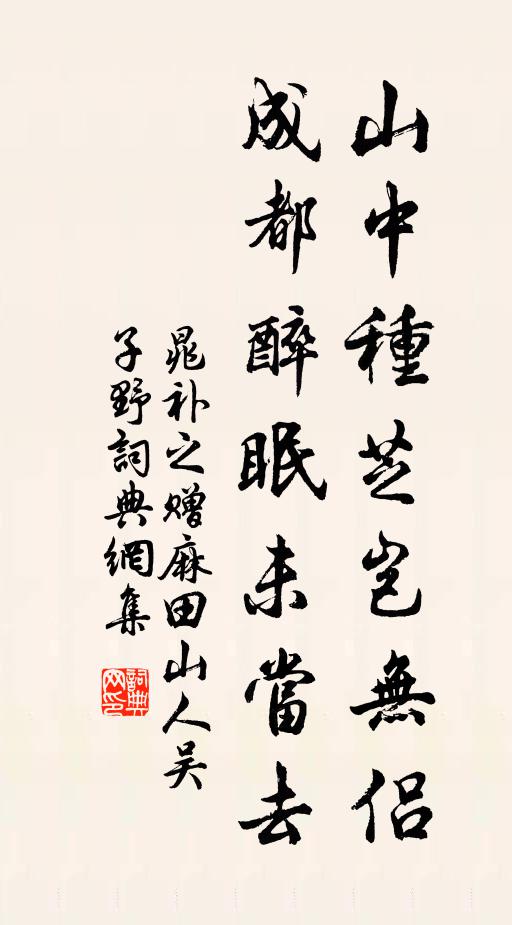 山中種芝豈無侶
成都醉眠未當去
晁补之赠麻田山人吴
子野詞典網集
詞典網印